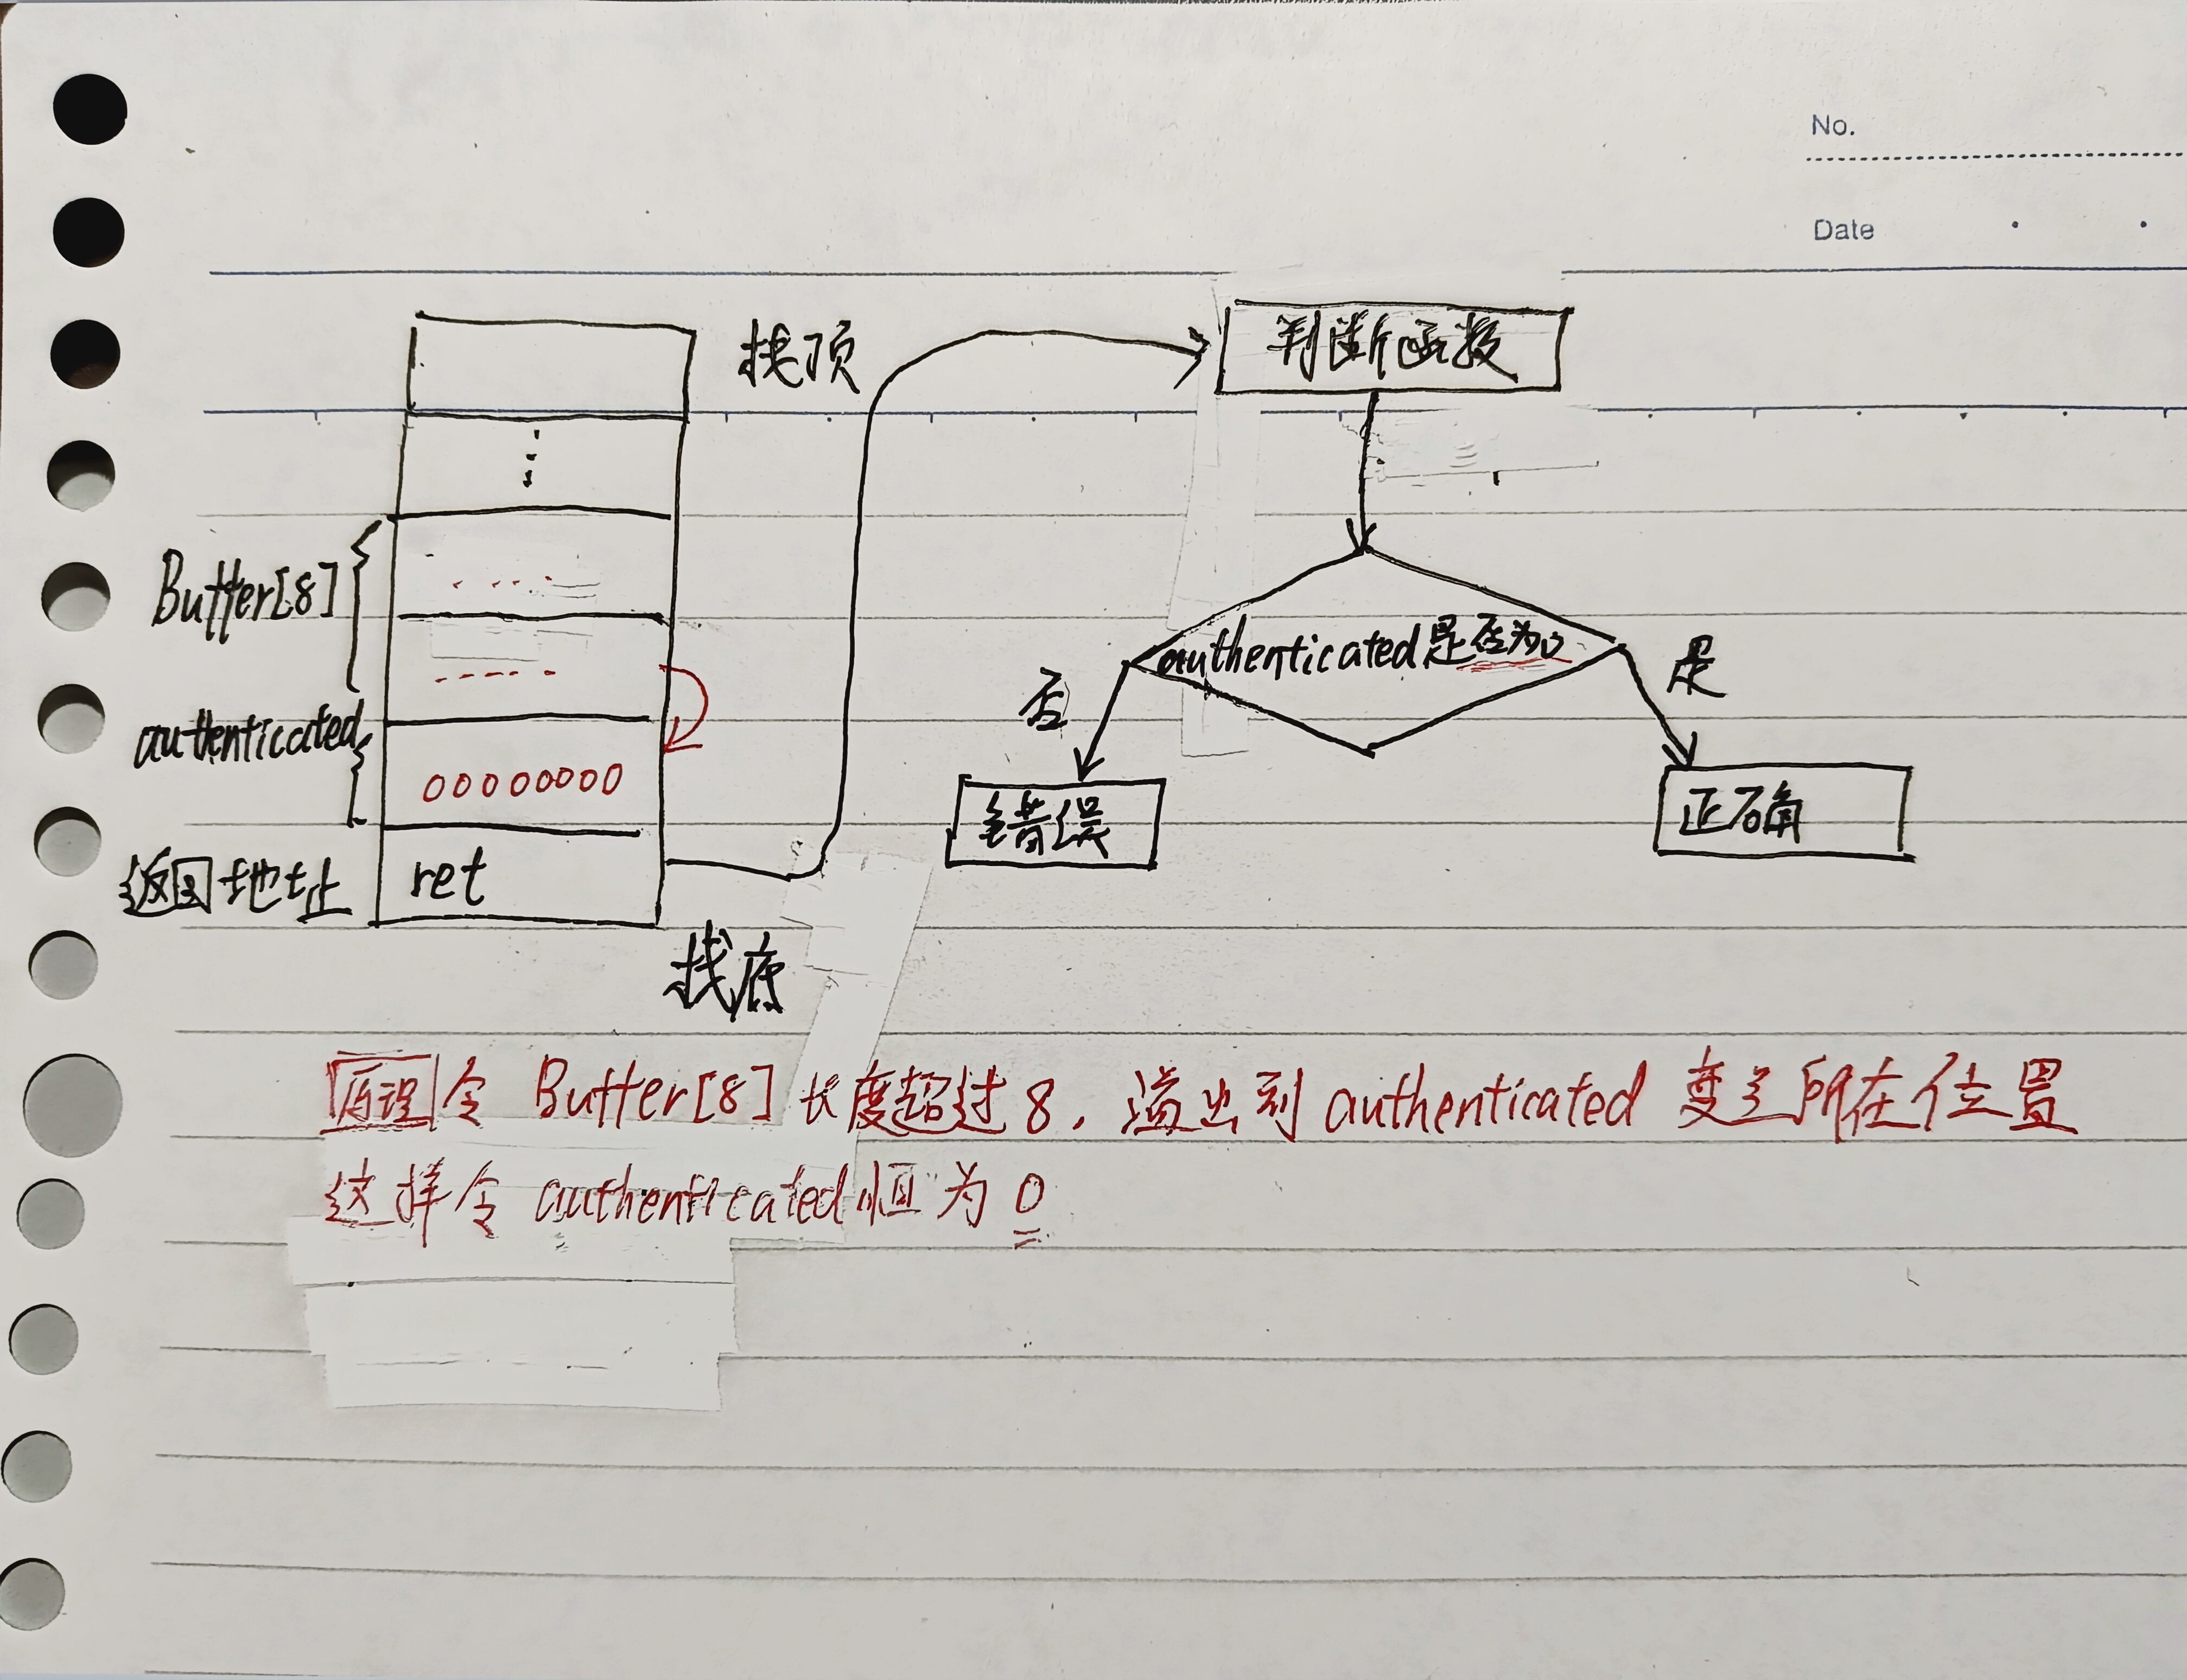 No.
Date
栈顶
判断函数
Buffer[8]
authenticated是否为0
否
是
authenticated
00000000
错误
正确
返回地址
ret
栈底
原理 令 Buffer[8] 长度超过8，溢出到 authenticated 变量所在位置
这样令 authenticated 恒为 0